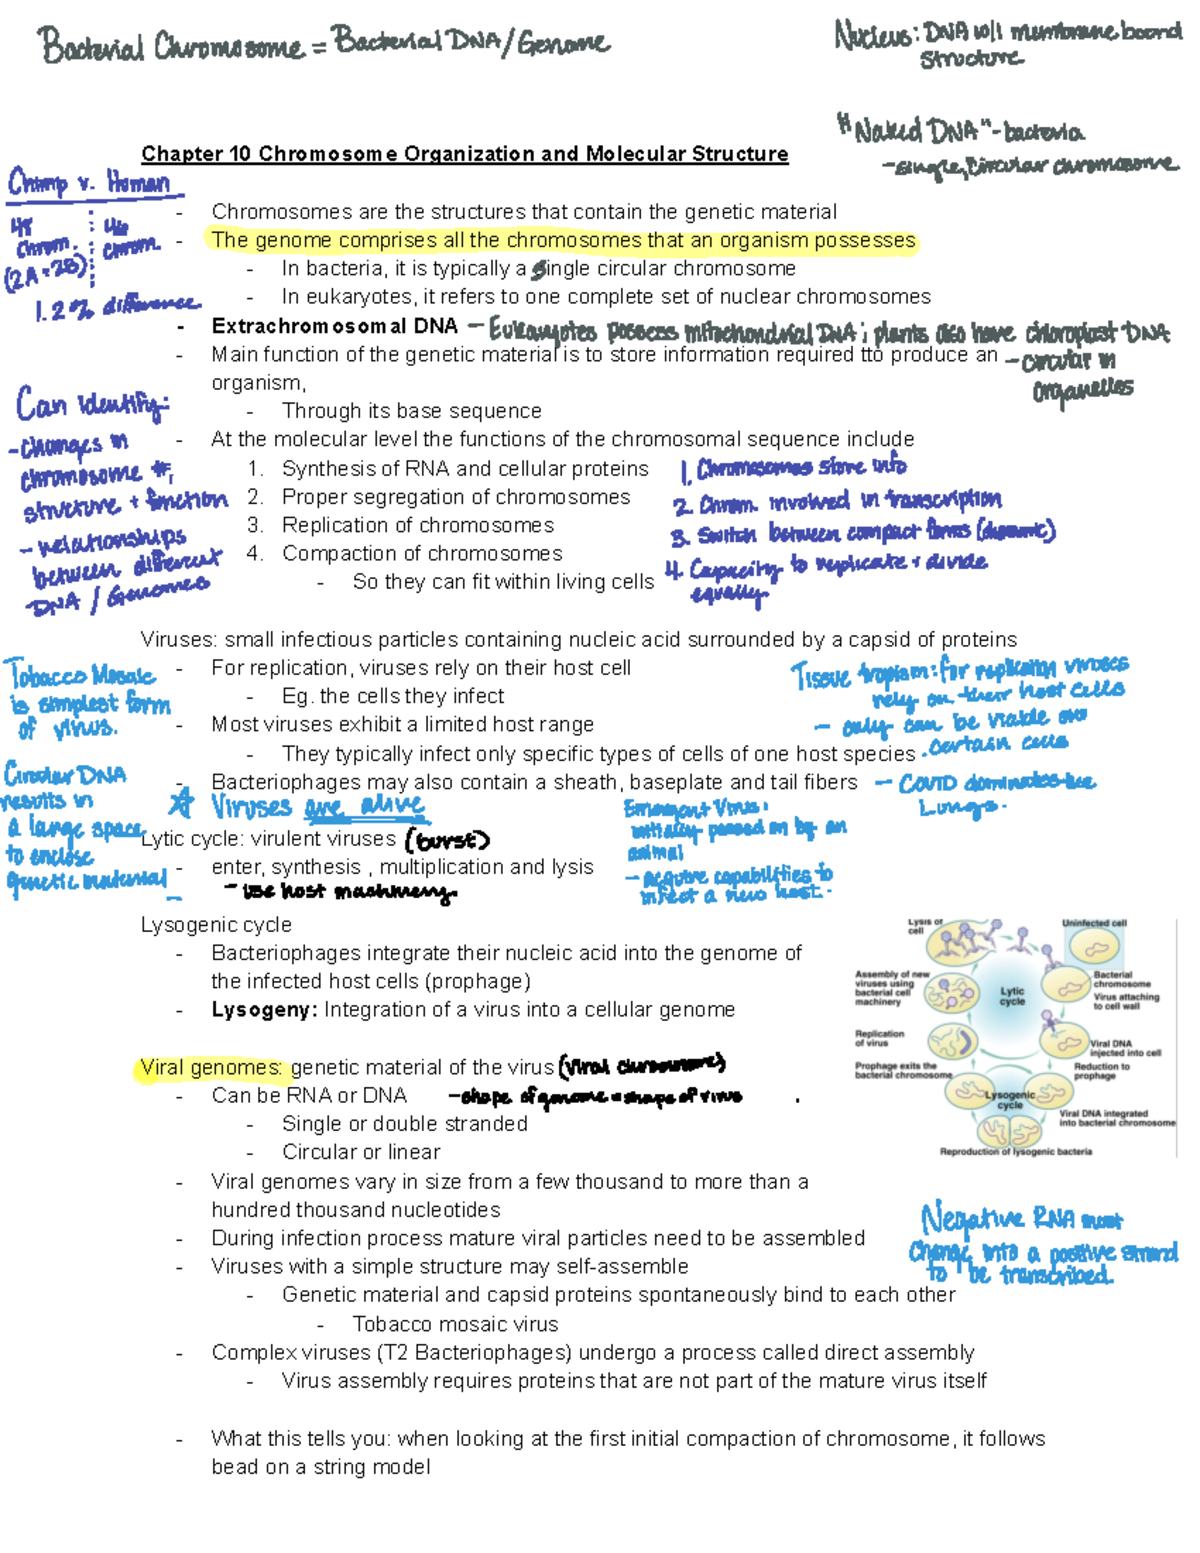 Bacterial Chromosome = Bacterial DNA/Genome
Nucleus: DNA w/i membrane bound
structure
"Naked DNA" - bacteria
- single, circular chromosome
Chapter 10 Chromosome Organization and Molecular Structure
Chimp v. Human
48 46
chrom. chrom.
(2A+2B)
1.2% difference
- Chromosomes are the structures that contain the genetic material
- The genome comprises all the chromosomes that an organism possesses
- In bacteria, it is typically a single circular chromosome
- In eukaryotes, it refers to one complete set of nuclear chromosomes
- Extrachromosomal DNA - Eukaryotes possess mitochondrial DNA; plants also have chloroplast DNA
- circular in
organelles
- Main function of the genetic material is to store information required tto produce an
organism,
- Through its base sequence
- At the molecular level the functions of the chromosomal sequence include
1. Synthesis of RNA and cellular proteins
2. Proper segregation of chromosomes
3. Replication of chromosomes
4. Compaction of chromosomes
- So they can fit within living cells
Can identify:
- changes in
chromosome #,
structure + function
- relationships
between different
DNA / Genomes
1. Chromosomes store info
2. Chrom. involved in transcription
3. Switch between compact forms (dynamic)
4. Capacity to replicate + divide
equally.
Viruses: small infectious particles containing nucleic acid surrounded by a capsid of proteins
- For replication, viruses rely on their host cell
- Eg. the cells they infect
- Most viruses exhibit a limited host range
- They typically infect only specific types of cells of one host species
- Bacteriophages may also contain a sheath, baseplate and tail fibers
Tobacco Mosaic
is simplest form
of virus.
Circular DNA
results in
a large space
to enclose
genetic material
Tissue tropism: for replication viruses
rely on their host cells
- only can be viable in
certain cells
- COVID dominates
Lungs.
☆ Viruses are alive
Emergent Virus:
initially passed on by an
animal
- acquire capabilities to
infect a new host.
Lytic cycle: virulent viruses (burst)
- enter, synthesis , multiplication and lysis
- use host machinery.
Lysogenic cycle
- Bacteriophages integrate their nucleic acid into the genome of
the infected host cells (prophage)
- Lysogeny: Integration of a virus into a cellular genome
Lysis of
cell
Uninfected cell
Assembly of new
viruses using
bacterial cell
machinery
Lytic
cycle
Bacterial
chromosome
Virus attaching
to cell wall
Replication
of virus
Viral DNA
injected into cell
Prophage exits the
bacterial chromosome
Reduction to
prophage
Lysogenic
cycle
Viral DNA integrated
into bacterial chromosome
Reproduction of lysogenic bacteria
Viral genomes: genetic material of the virus (viral chromosome)
- Can be RNA or DNA - shape of genome = shape of virus
- Single or double stranded
- Circular or linear
- Viral genomes vary in size from a few thousand to more than a
hundred thousand nucleotides
- During infection process mature viral particles need to be assembled
- Viruses with a simple structure may self-assemble
- Genetic material and capsid proteins spontaneously bind to each other
- Tobacco mosaic virus
- Complex viruses (T2 Bacteriophages) undergo a process called direct assembly
- Virus assembly requires proteins that are not part of the mature virus itself
Negative RNA must
change into a positive strand
to be transcribed.
- What this tells you: when looking at the first initial compaction of chromosome, it follows
bead on a string model